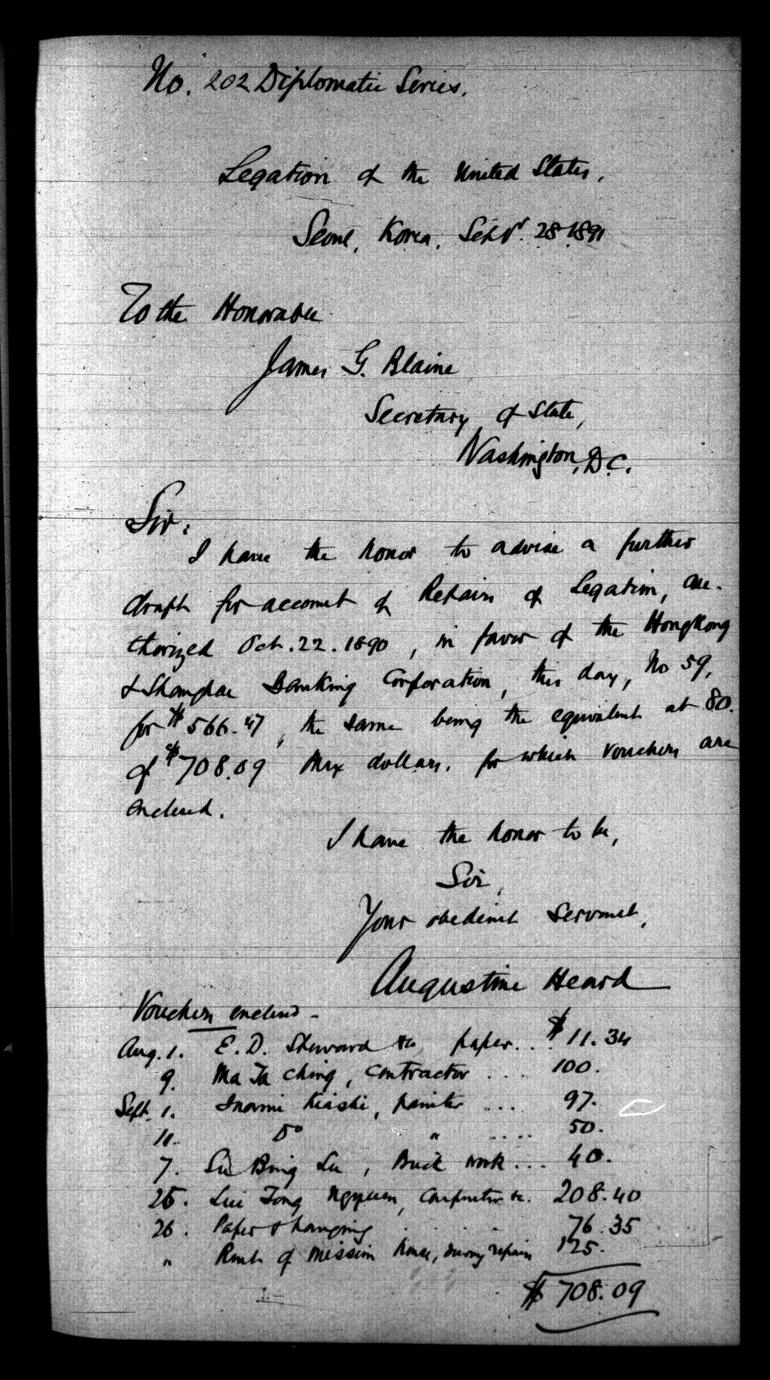 No. 202 Diplomatic Series.
Legation of the United States,
Seoul, Korea, Sept. 28 1891
To the Honorable
James G. Blaine
Secretary of State,
Washington, D.C.
Sir:
I have the honor to advise a further
draft for account of Repairs of Legation, au-
thorized Oct. 22. 1890, in favor of the Hongkong
& Shanghae Banking Corporation, this day, No 59,
for $566.47, the same being the equivalent at 80.
of $708.09 Mex dollars. for which vouchers are
enclosed.
I have the honor to be,
Sir,
Your obedient servant,
Augustine Heard
Vouchers enclosed -
Aug. 1. E. D. paper... $11.34
9. Ma Ta Ching, contractor .... 100.
Sept. 1. painter ... 97.
11. Do " .... 50.
7. Su Bing Lu, Brick work... 40.
25. Lui Tong 208.40
26. Paper & hanging 76.35
" Rent of mission house, during repairs 125.
$ 708.09